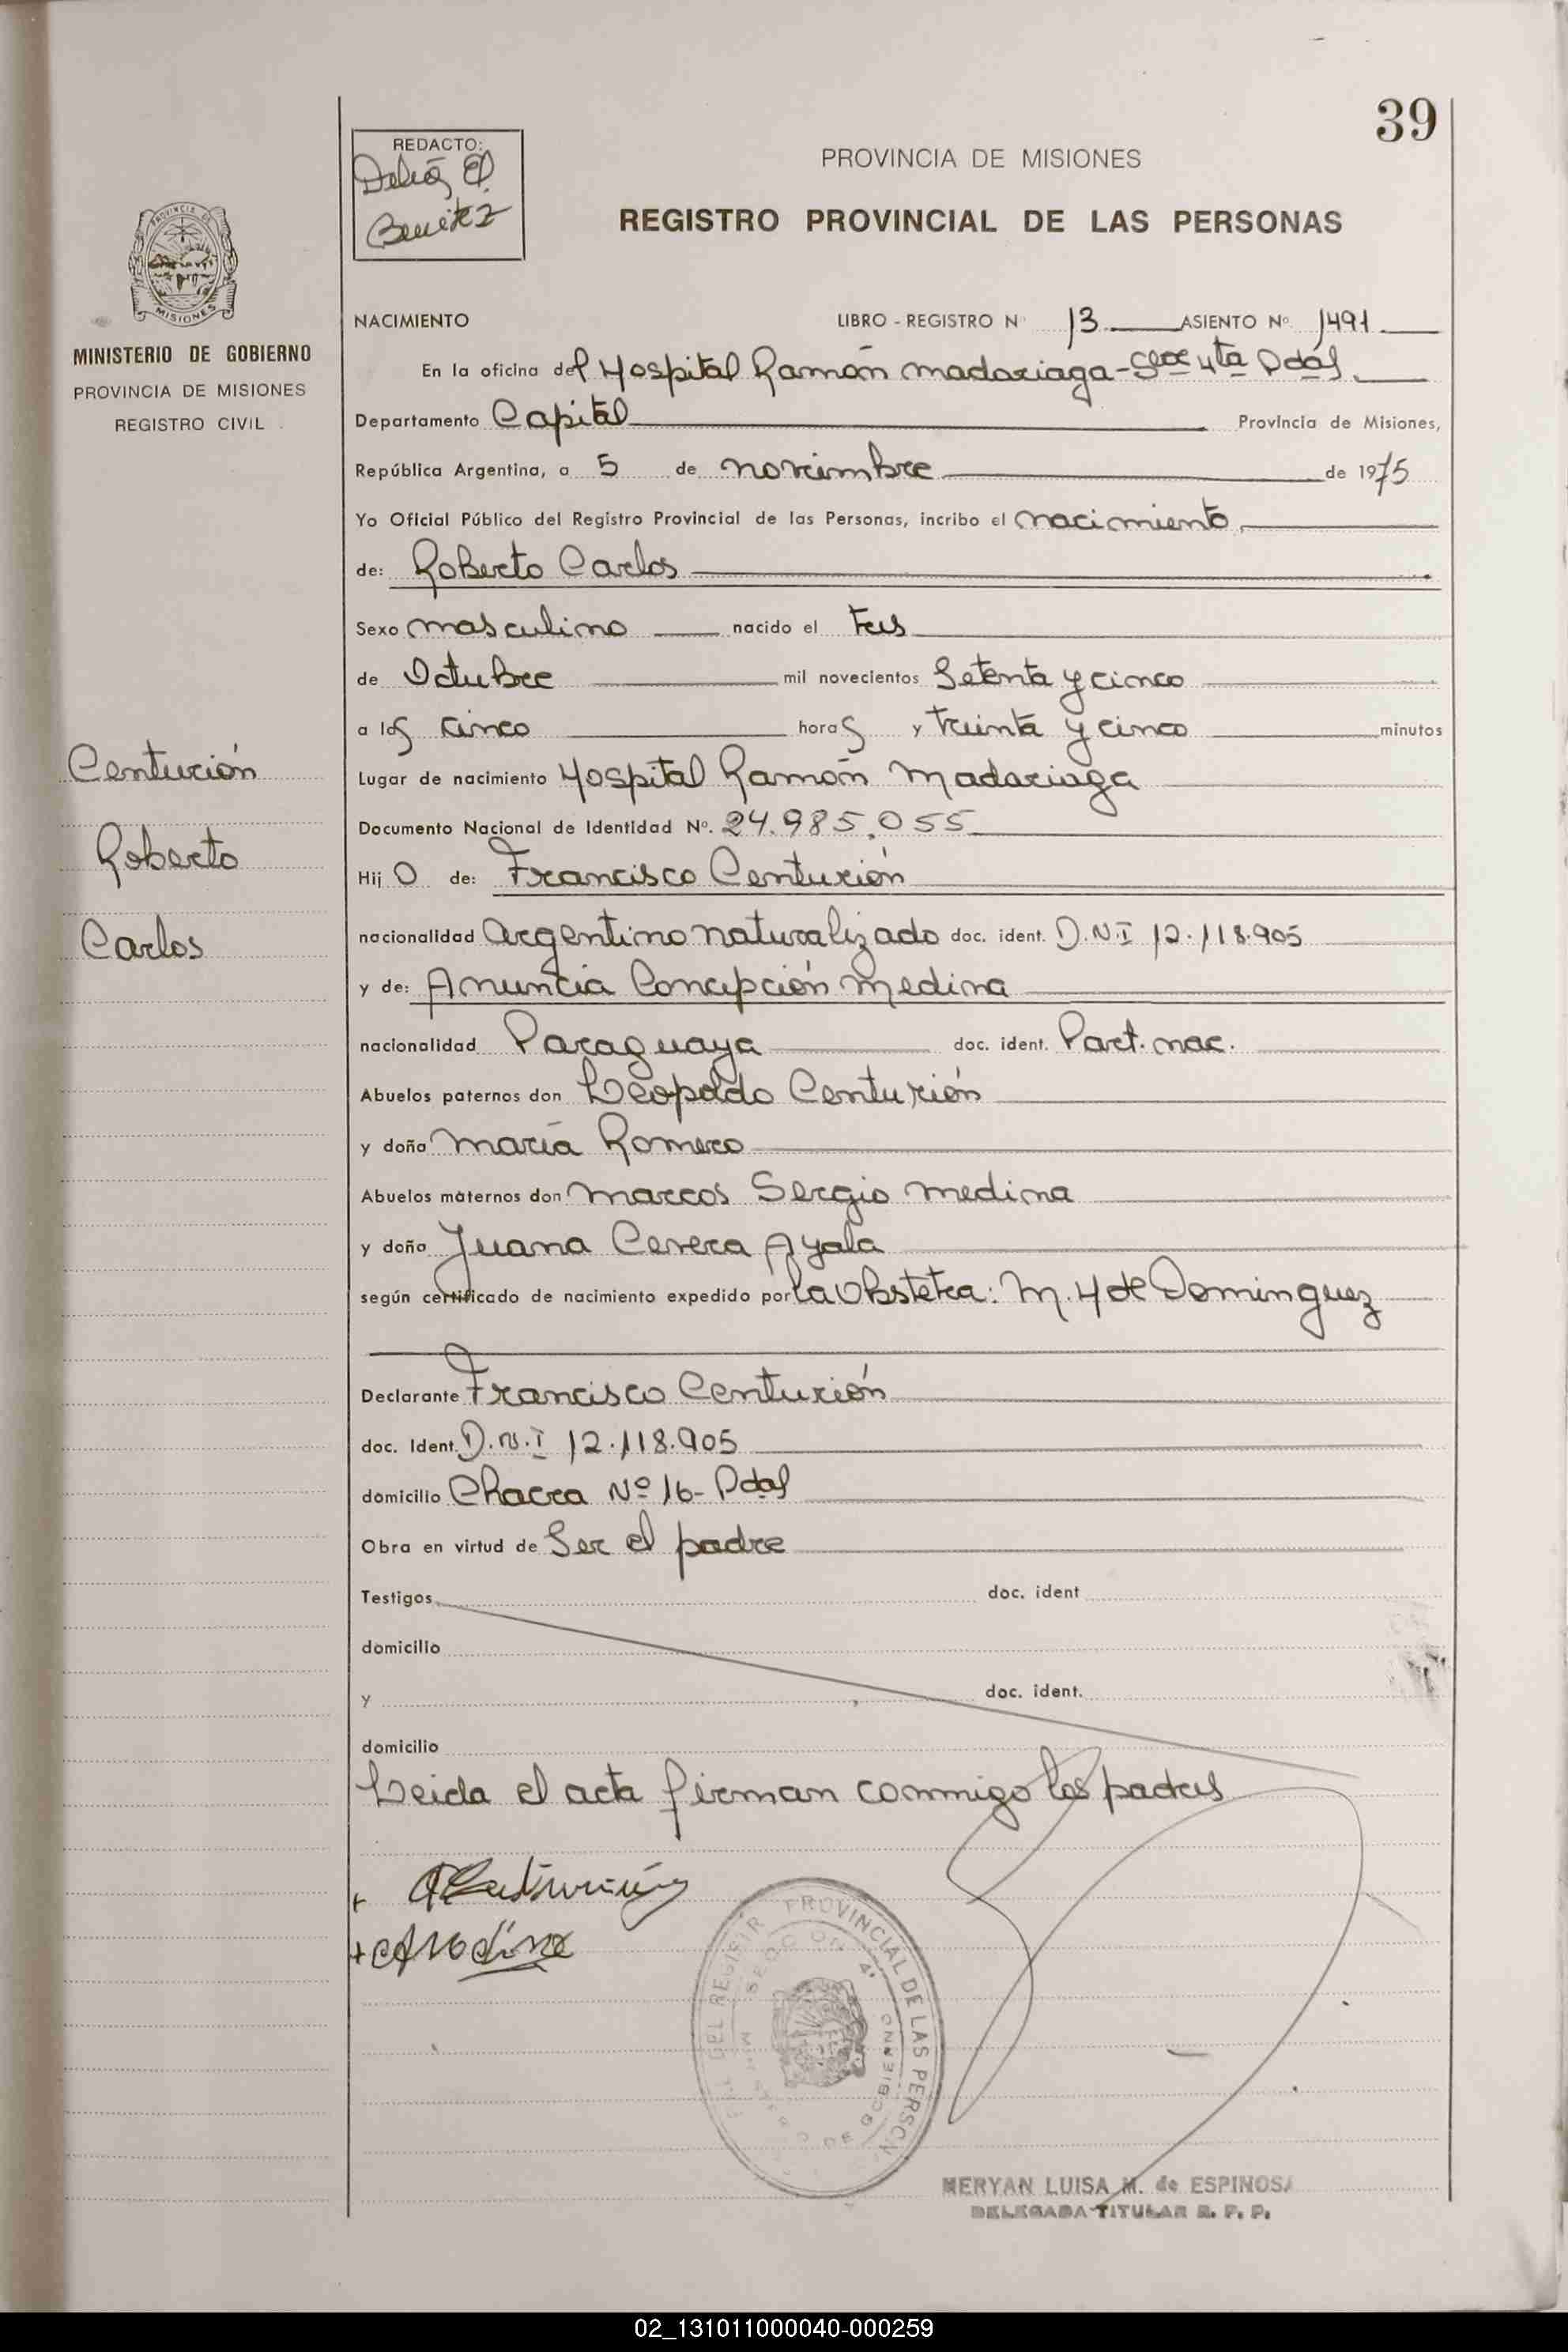 39
REDACTO:
Benitez
PROVINCIA DE MISIONES
REGISTRO PROVINCIAL DE LAS PERSONAS
MISIONES
MINISTERIO DE GOBIERNO
PROVINCIA DE MISIONES
REGISTRO CIVIL
NACIMIENTO LIBRO - REGISTRO N 13 ASIENTO Nº 1491
En la oficina del Hospital Ramón Madariaga - Secc 4ta Pdas
Departamento Capital Provincia de Misiones,
República Argentina, a 5 de noviembre de 1975
Yo Oficial Público del Registro Provincial de las Personas, incribo el nacimiento
de: Roberto Carlos
Sexo masculino nacido el tres
de Octubre mil novecientos Setenta y cinco
a las cinco horas y treinta y cinco minutos
Lugar de nacimiento Hospital Ramón Madariaga
Documento Nacional de Identidad Nº. 24.985.055
Hij o de: Francisco Centurión
nacionalidad Argentino naturalizado doc. ident. D.N.I 12.118.905
y de: Anuncia Concepción Medina
nacionalidad Paraguaya doc. ident. Part. nac.
Abuelos paternos don Leopoldo Centurión
y doña María Romero
Abuelos maternos don Marcos Sergio Medina
y doña Juana Cevera Ayala
según certificado de nacimiento expedido por la Obstetra: M. H de Dominguez
Declarante Francisco Centurión
doc. Ident. D.N.I 12.118.905
domicilio Chacra Nº 16 - Pdas
Obra en virtud de Ser el padre
Testigos doc. ident
domicilio
y doc. ident.
domicilio
Leida el acta firman conmigo los padres
Centurión
Roberto
Carlos
PROVINCIAL DE LAS PERSON
SECCION 4ª
MINISTERIO DE GOBIERNO
MERYAN LUISA M. de ESPINOSA
DELEGADA TITULAR R. P. P.
02_131011000040-000259